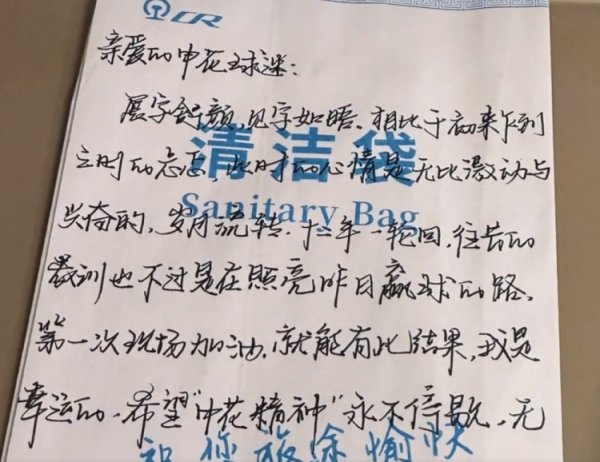 CR
亲爱的申花球迷:
展字舒颜,见字如晤.相比于初来乍到
清洁袋
之时的忐忑,此时的心情是无比激动与
Sanitary Bag
兴奋的,岁月流转.十二年一轮回,往昔的
教训也不过是在照亮昨日赢球的路.
第一次现场加油,就能有此结果,我是
幸运的.希望"申花精神"永不停歇,无
祝你旅途愉快